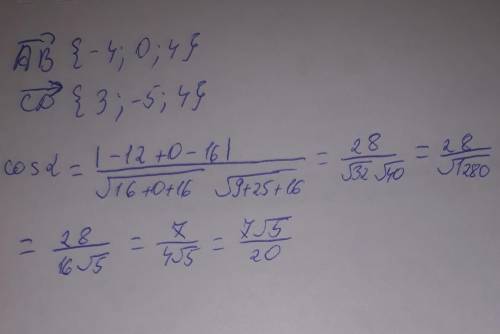 AB {-4; 0; 4}
CD {3; -5; 4}
cos α = |-12 + 0 - 16| / √16+0+16 √9+25+16 = 28 / √32 √40 = 28 / √1280
= 28 / 16√5 = 7 / 4√5 = 7√5 / 20